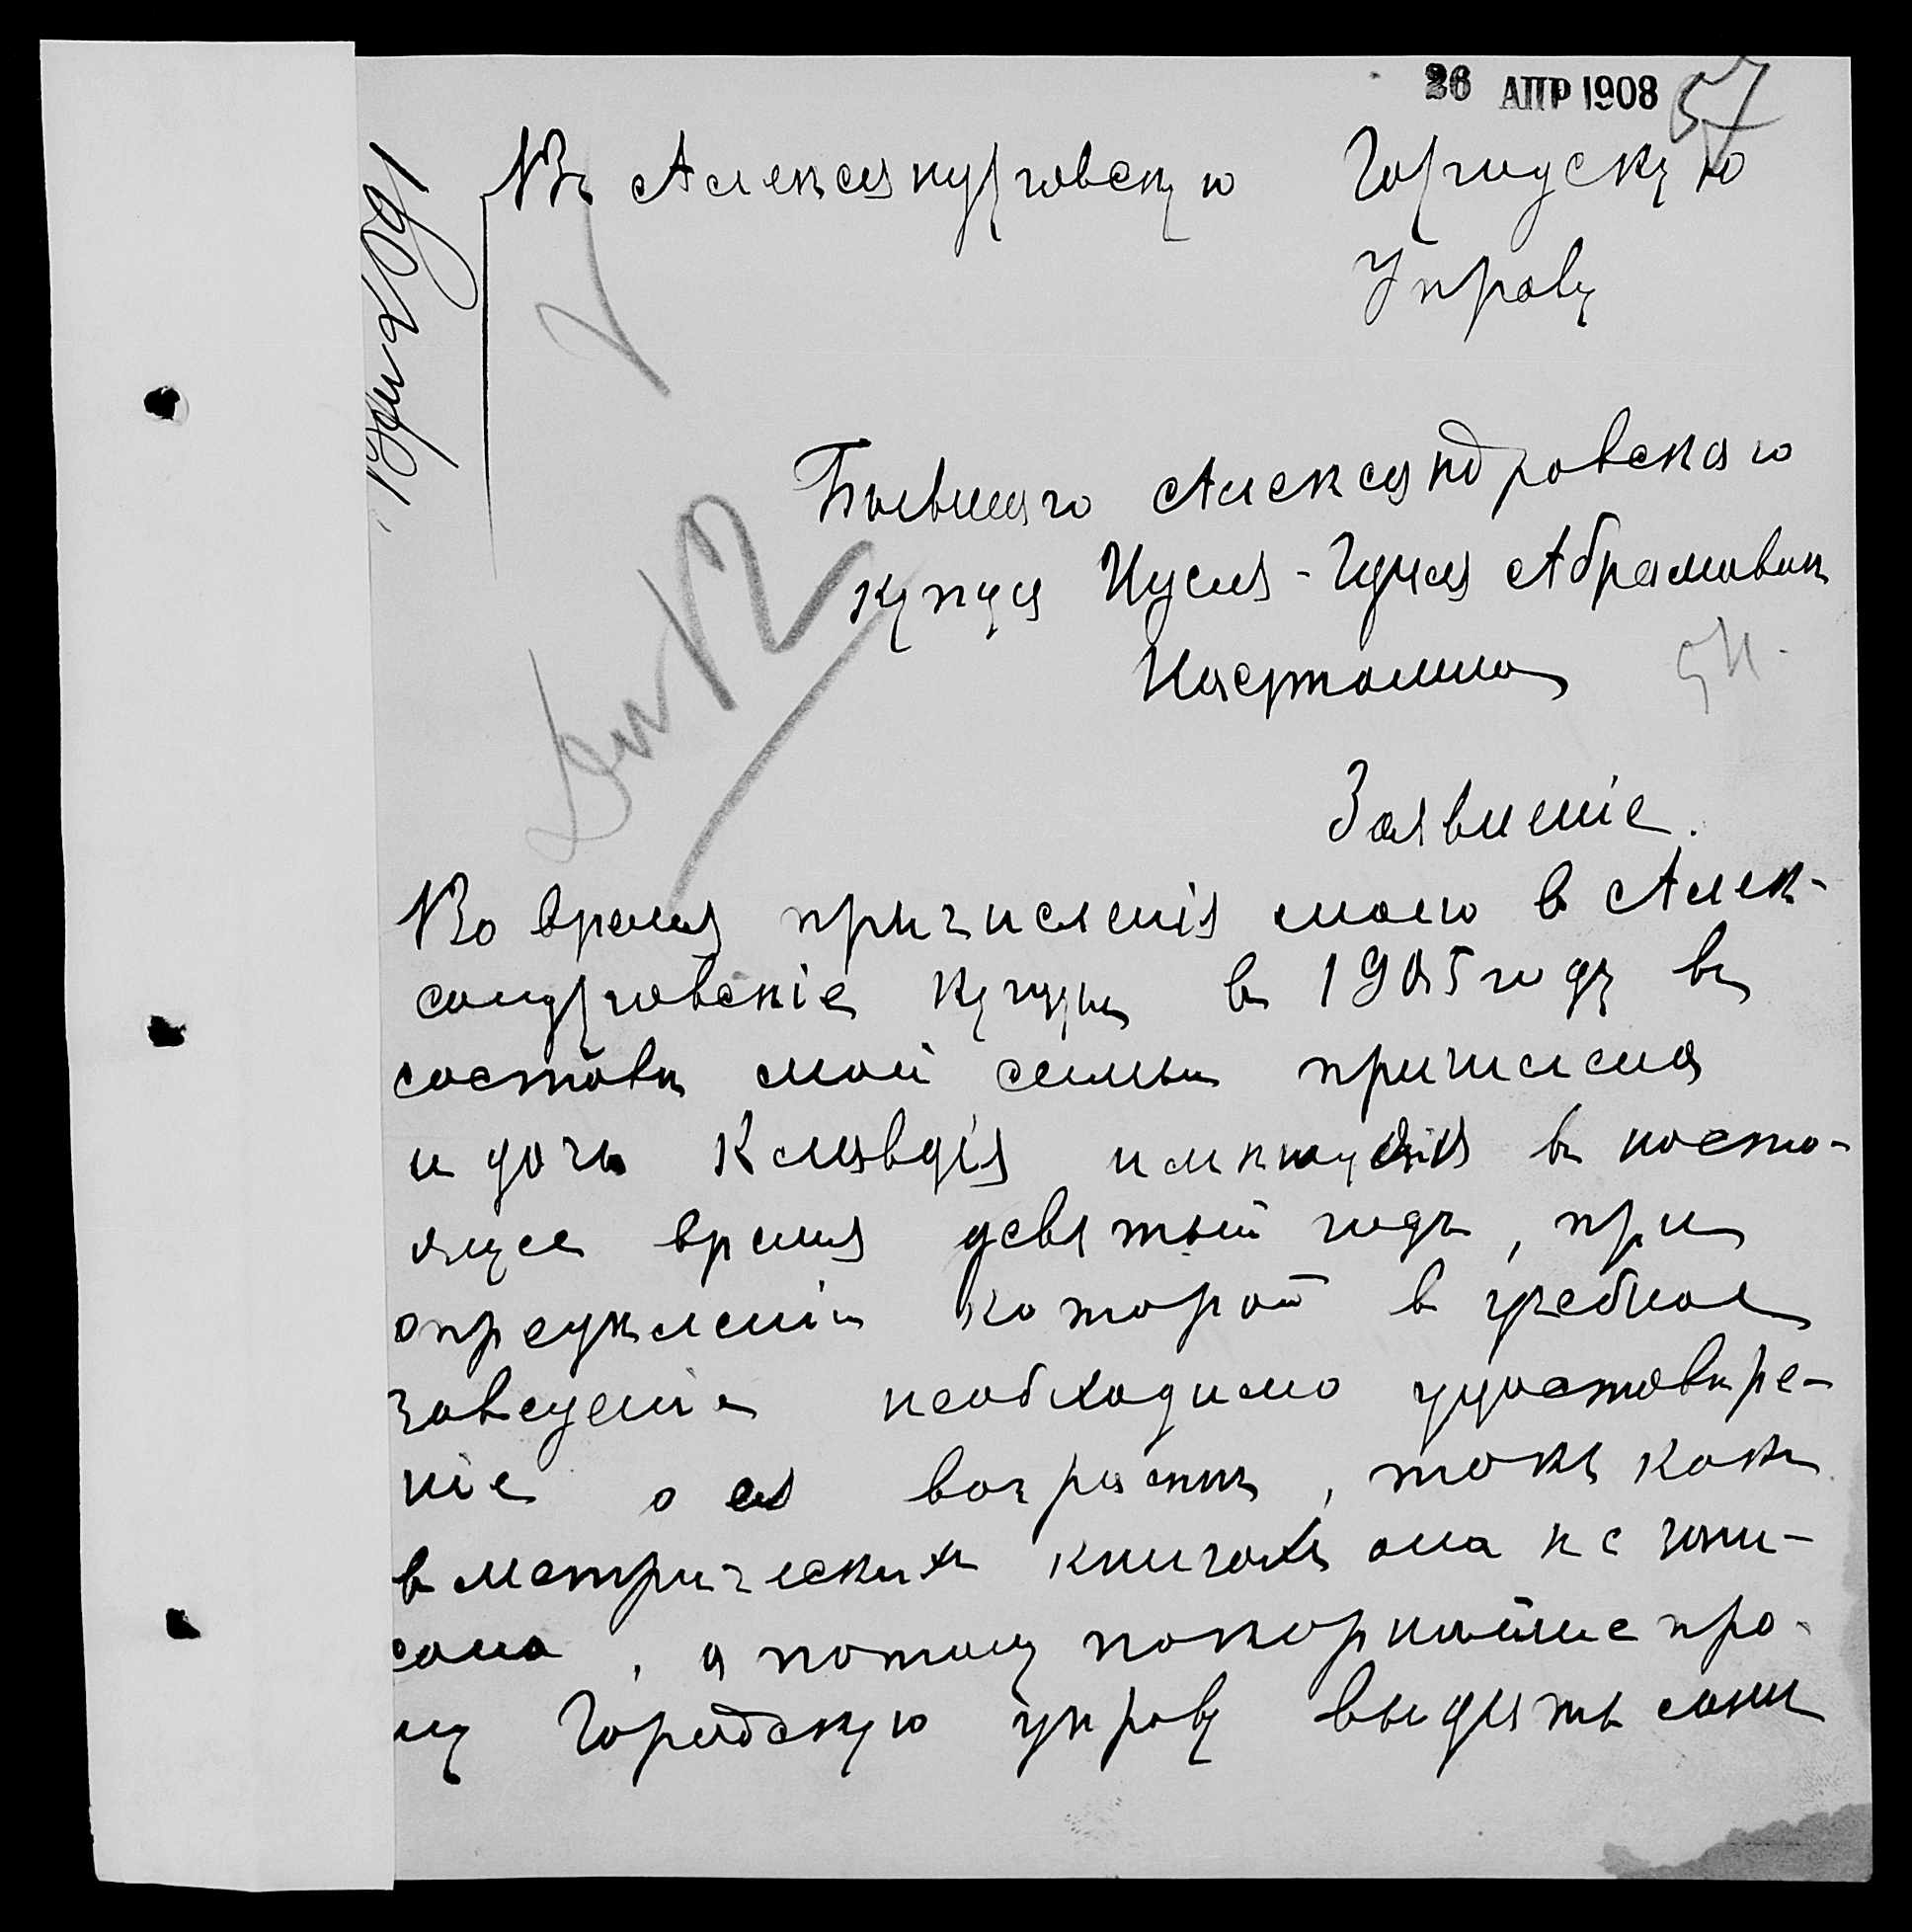 26 АПР 1908
57
Въ Александровскую Городскую
Управу
Бывшаго Александровскаго
купца Абрамович
Заявленіе.
Во время причисленія моего в Алек-
сандровскіе купцы въ 1905 году въ
составъ моей семьи причислена
и дочь Клавдія имѣющая въ насто-
ящее время девятый годъ, при
опредѣленіи которой в учебное
заведеніе необходимо удостовѣре-
ніе о ея возрастѣ, такъ какъ
в метрическихъ книгахъ она не запи-
сана, а потому покорнѣйше про-
шу Городскую управу выдать